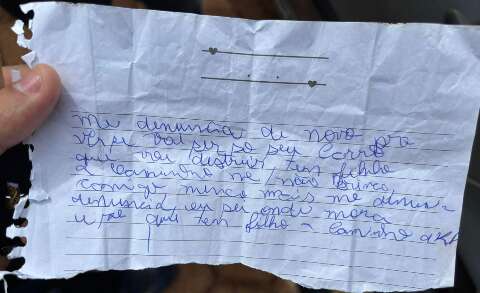 me denuncia de novo pra
ver se vai ser so seu carro
que vai destruir tem filho
a caminho né não brinca
comigo nunca mais me
denuncia eu sei onde mora
e que tem filho a caminho